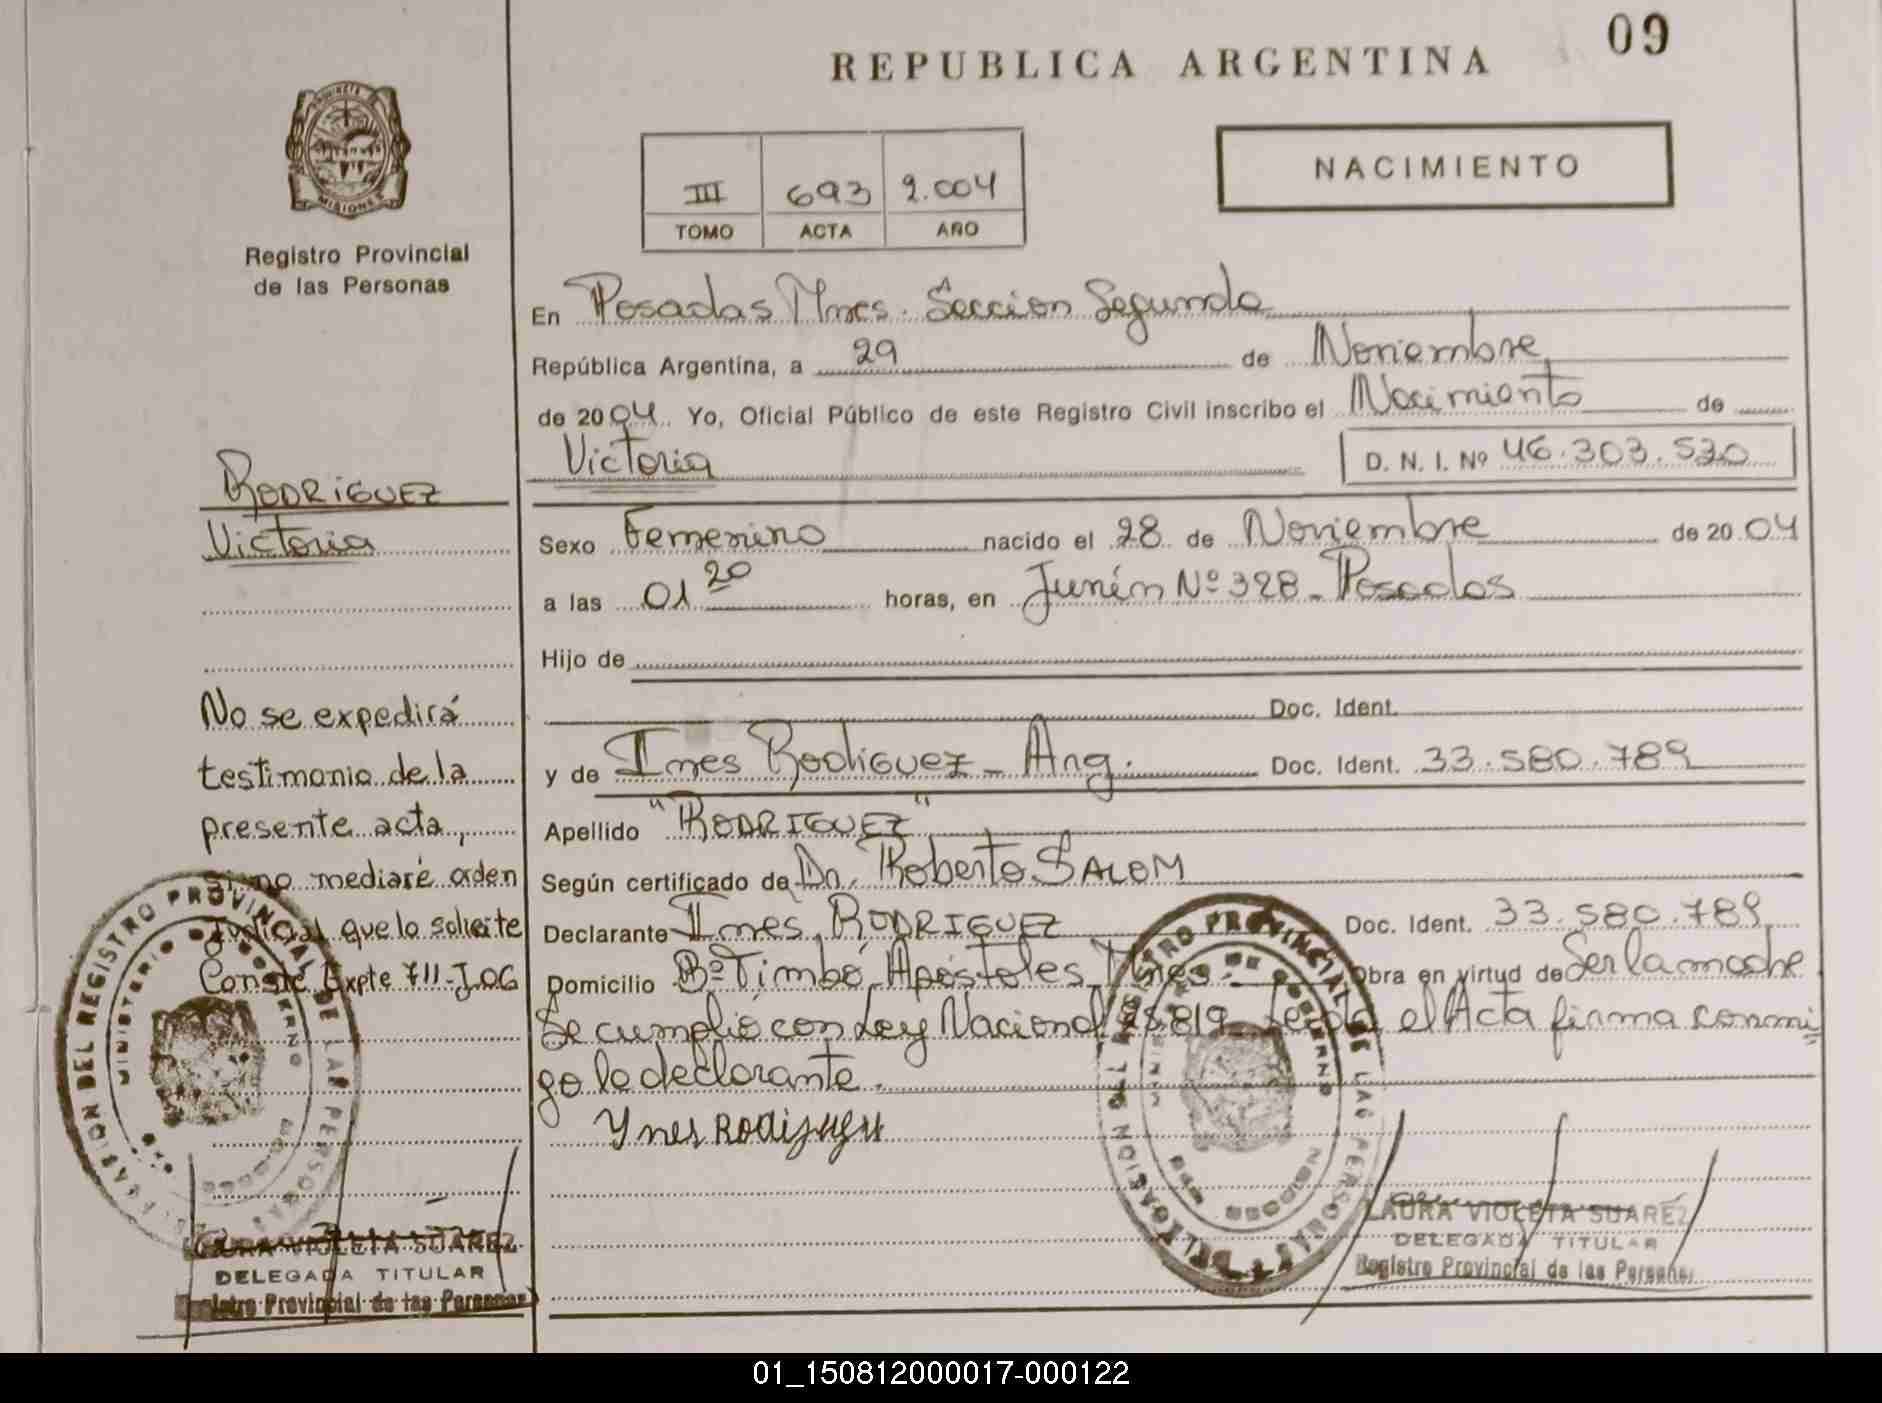 09
REPUBLICA ARGENTINA
PROVINCIA DE
MISIONES
Registro Provincial
de las Personas
III 693 2.004
TOMO ACTA AÑO
NACIMIENTO
En Posadas Mnes. Sección Segunda
República Argentina, a 29 de Noviembre
de 2004. Yo, Oficial Público de este Registro Civil inscribo el Nacimiento de
Victoria D. N. I. Nº 46.303.530
RODRIGUEZ
Victoria
Sexo Femenino nacido el 28 de Noviembre de 2004
a las 01 20 horas, en Junín Nº 328 - Posadas
Hijo de
Doc. Ident.
y de Ines Rodiguez - Arg. Doc. Ident. 33.580.789
Apellido "RODRIGUEZ"
Según certificado de Dr. Roberto SALOM
Declarante Ines RODRIGUEZ Doc. Ident. 33.580.789
Domicilio Bº Timbó Apóstoles Mnes. Obra en virtud de Ser la madre
Se cumplió con Ley Nacional 25.819 Leída el Acta firma conmi
go la declarante.
Ynes Rodiguez
No se expedirá
testimonio de la
presente acta,
si no mediaré orden
Judicial que lo solicite
Conste Expte 711-I-06
DELEGACION DEL REGISTRO PROVINCIAL DE LAS PERSONAS
MINISTERIO DE GOBIERNO
LAURA VIOLETA SUAREZ
DELEGADA TITULAR
Registro Provincial de las Personas
DELEGACION DEL REGISTRO PROVINCIAL DE LAS PERSONAS
MINISTERIO DE GOBIERNO
LAURA VIOLETA SUAREZ
DELEGADA TITULAR
Registro Provincial de las Personas
01_150812000017-000122